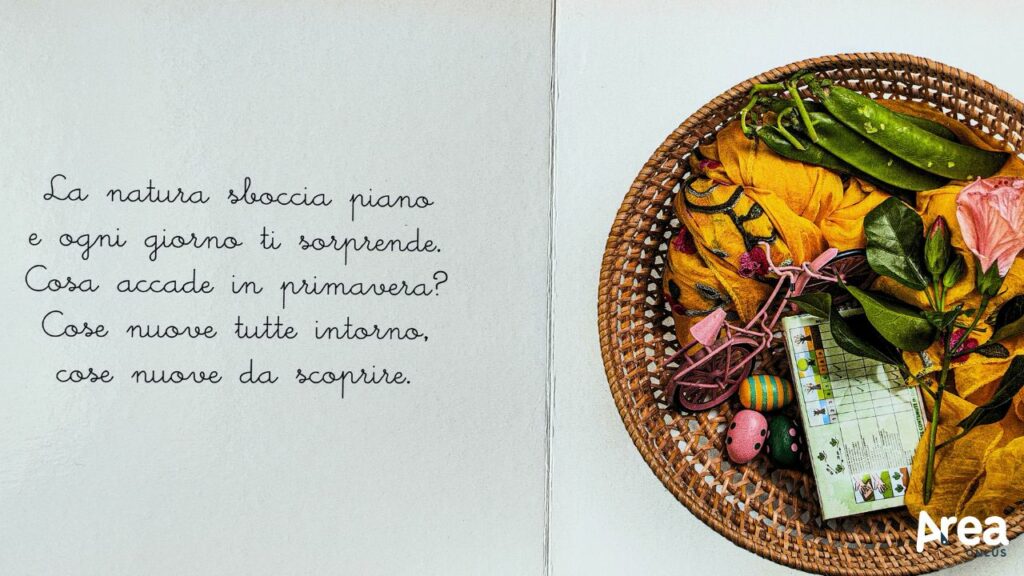 La natura sboccia piano
e ogni giorno ti sorprende.
Cosa accade in primavera?
Cose nuove tutte intorno,
cose nuove da scoprire.
Area
ONLUS